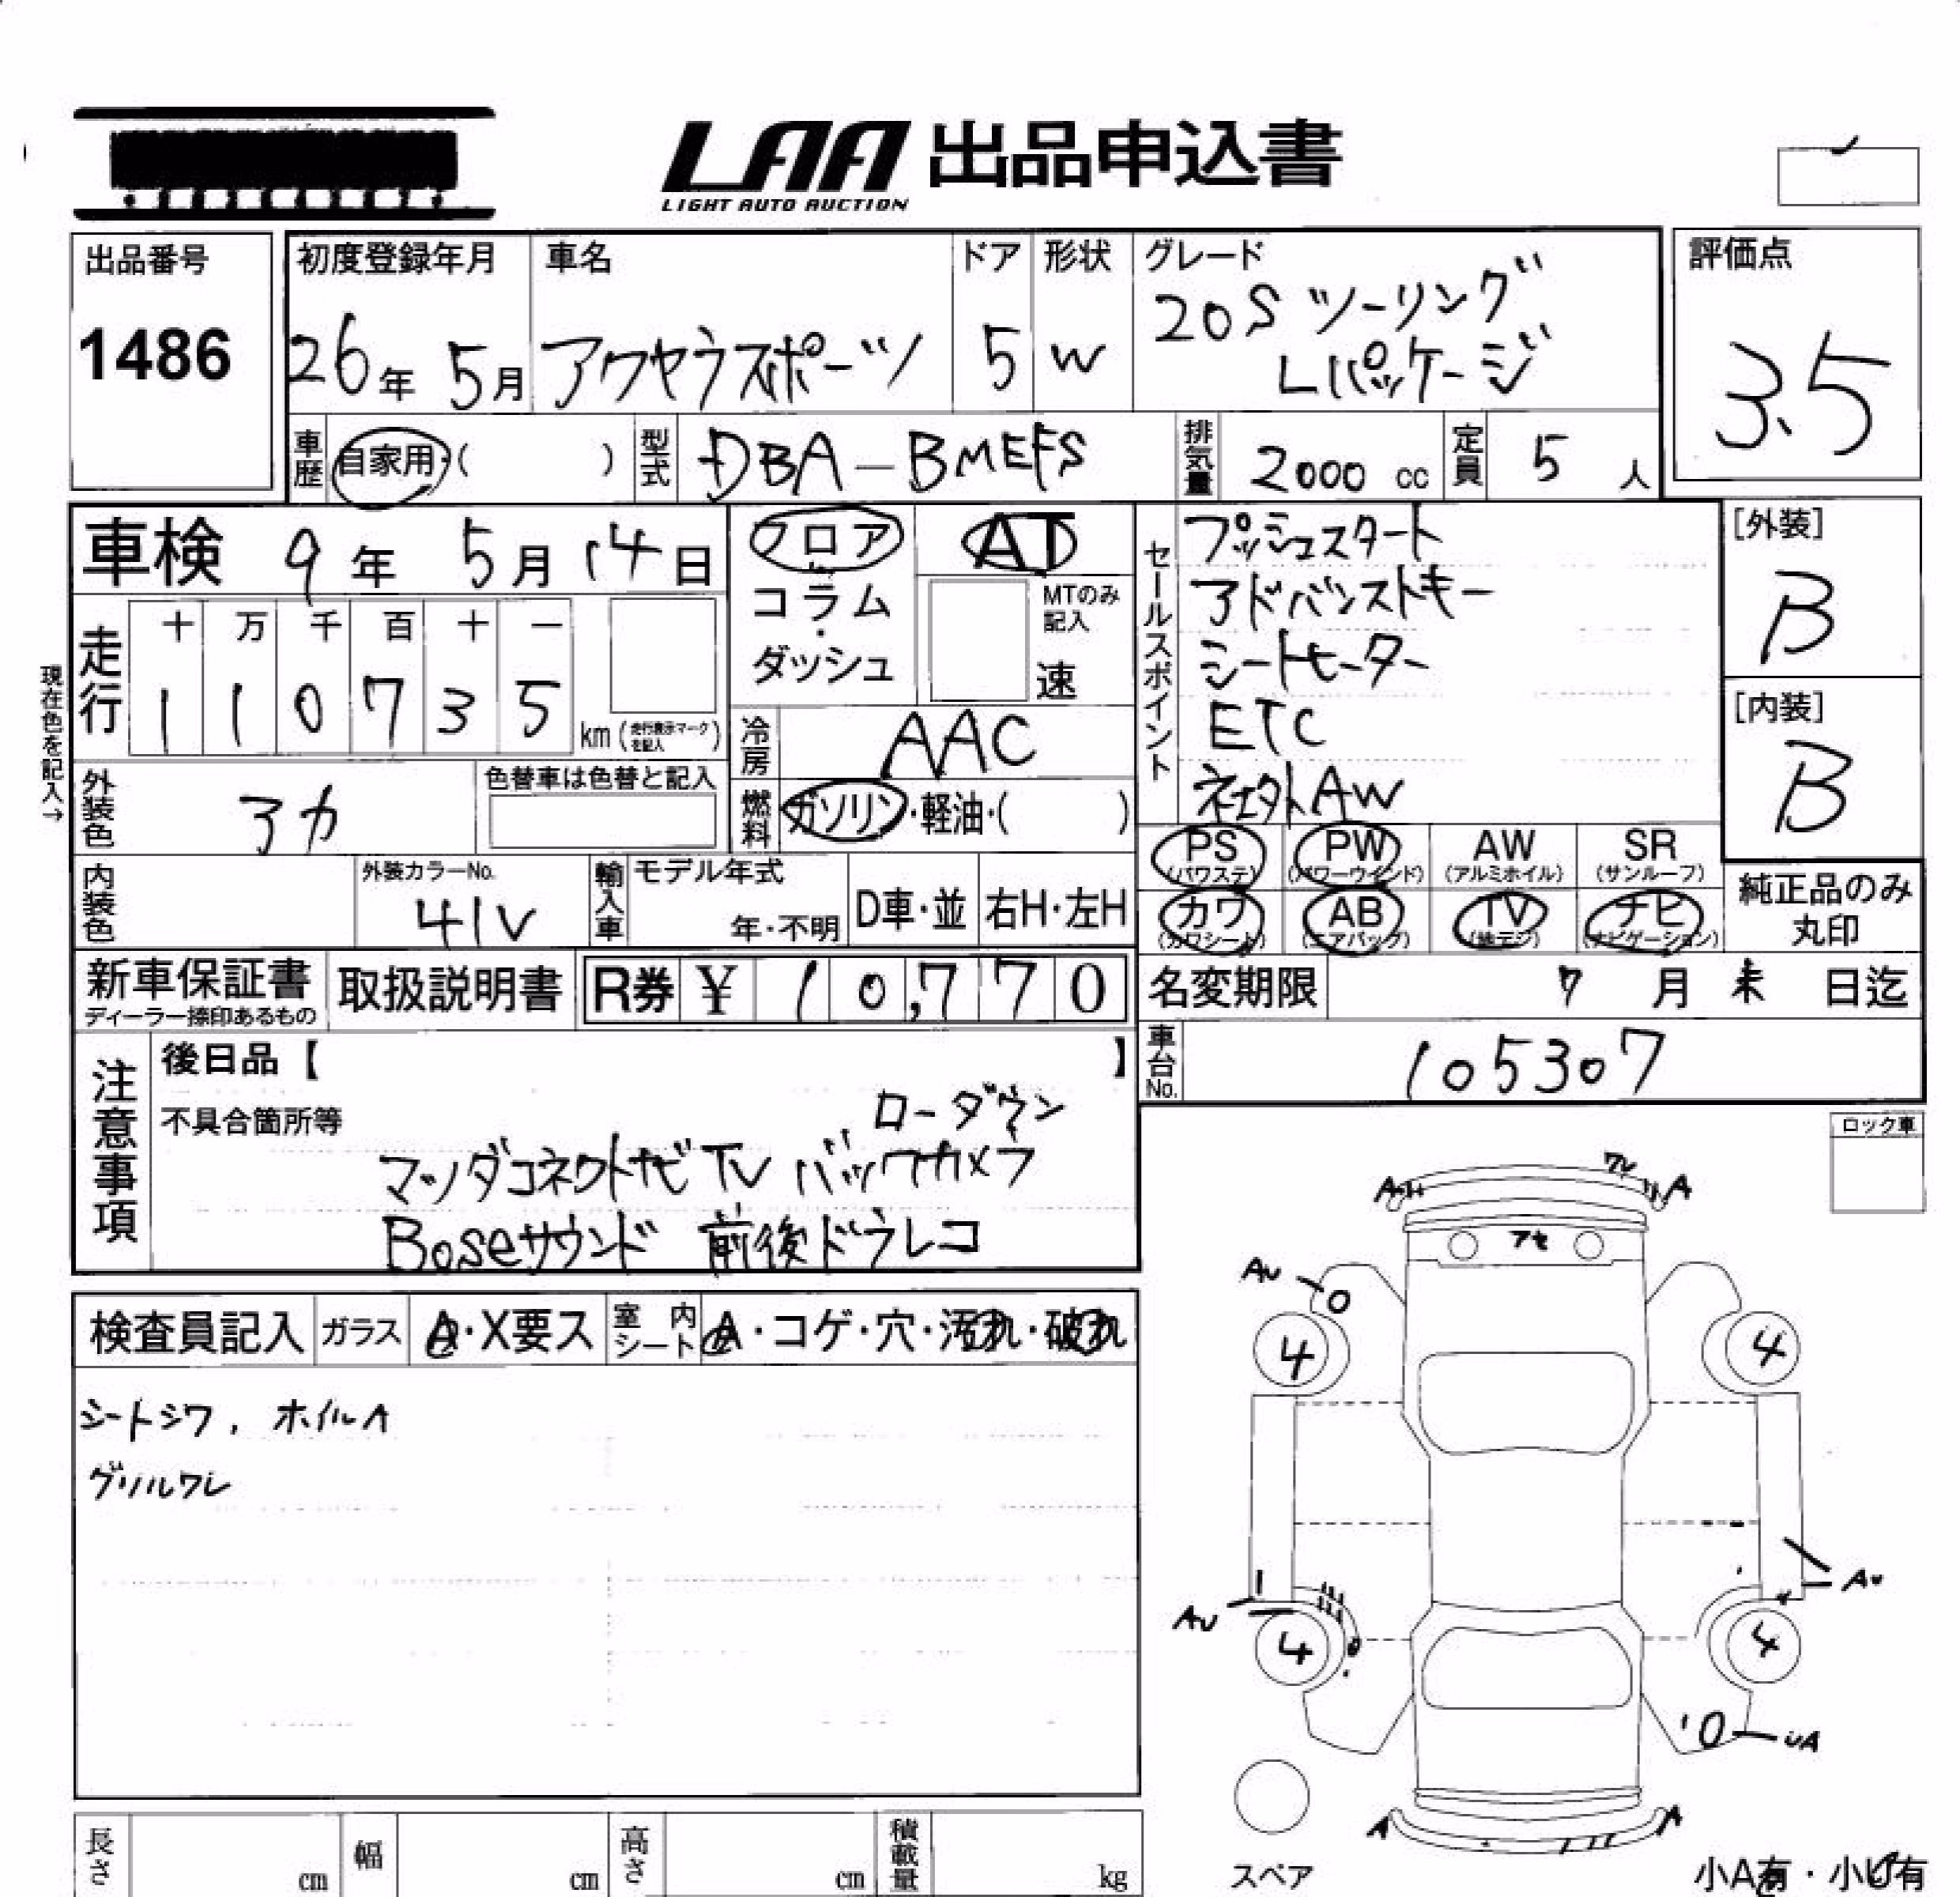 LAA 出品申込書
LIGHT AUTO AUCTION
出品番号
1486
初度登録年月
26年 5月
車名
アクセラスポーツ
ドア
5
形状
W
グレード
20S ツーリング
Lパッケージ
評価点
3.5
車歴
自家用・( )
型式
DBA-BMEFS
排気量
2000 cc
定員
5 人
車検 9年 5月 14日
フロア
コラム
・
ダッシュ
AT
MTのみ
記入
速
セールスポイント
プッシュスタート
アドバンストキー
シートヒーター
ETC
社外AW
[外装]
B
[内装]
B
現在色を記入→
走行
十 万 千 百 十 一
1 1 0 7 3 5
km (走行表示マークを記入)
冷房
AAC
燃料
ガソリン・軽油・( )
外装色
アカ
色替車は色替と記入
PS
(パワステ)
PW
(パワーウインド)
AW
(アルミホイル)
SR
(サンルーフ)
カワ
(カワシート)
AB
(エアバッグ)
TV
(地デジ)
ナビ
(ナビゲーション)
純正品のみ
丸印
内装色
外装カラーNo.
41V
輸入車
モデル年式
年・不明
D車・並
右H・左H
新車保証書
ディーラー捺印あるもの
取扱説明書
R券 ¥ 10,770
名変期限
7 月 末 日迄
車台No.
105307
注意事項
後日品【 】
不具合箇所等
ローダウン
マツダコネクトナビ TV バックカメラ
Boseサウンド 前後ドラレコ
ロック車
検査員記入
ガラス
A・X要ス
室内シート
A・コゲ・穴・汚れ・破れ
シートシワ, ホイルA
グリルワレ
ワレ
A
A
アセ
AU
4
4
AU
AU
4
4
UA
A
A
スペア
長さ
cm
幅
cm
高さ
cm
積載量
kg
小A有・小U有